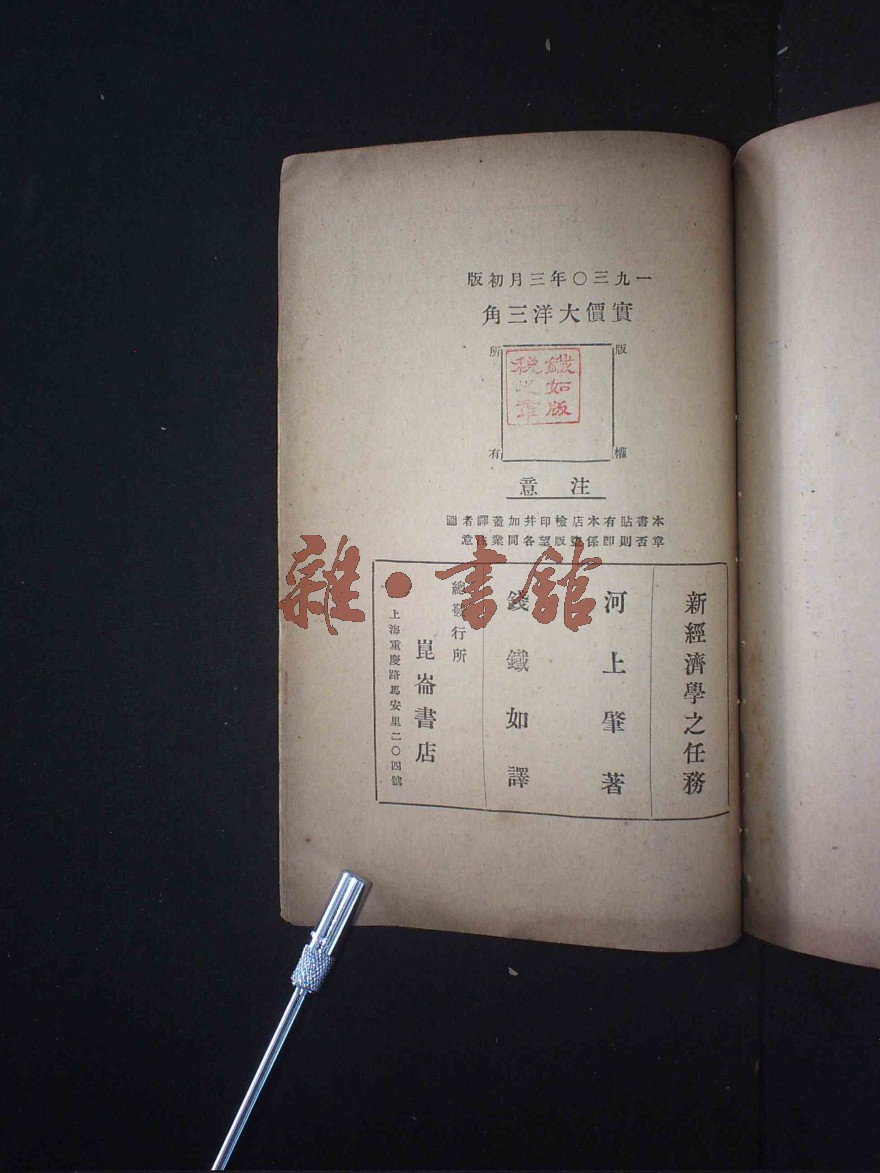 一九三〇年三月初版
實價大洋三角
版權所有
鐵如版稅之章
注意
本書貼有本店檢印并加蓋譯者圖
章否則即係盜版望各同業注意
新經濟學之任務
河上肇著
錢鐵如譯
總發行所
崑崙書店
上海重慶路馬安里二〇四號
雜·書館